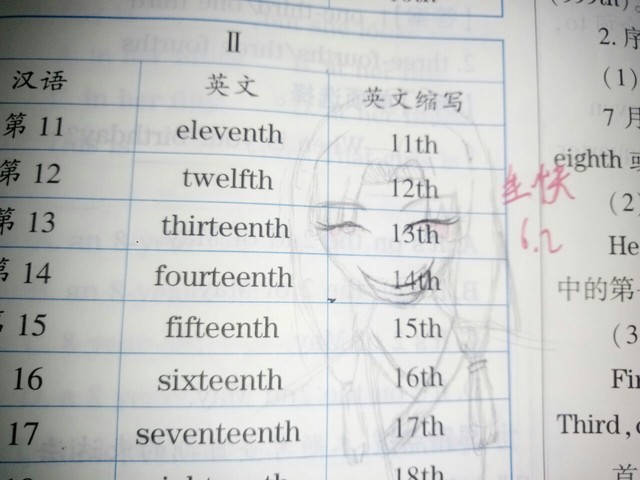 Ⅱ
汉语 英文 英文缩写
第 11 eleventh 11th
第 12 twelfth 12th
第 13 thirteenth 13th
第 14 fourteenth 14th
第 15 fifteenth 15th
16 sixteenth 16th
17 seventeenth 17th
18th
生快
6.2
2. 序
(1)
7 月
eighth 或
(2)
He
中的第
(3
Fir
Third, c
首